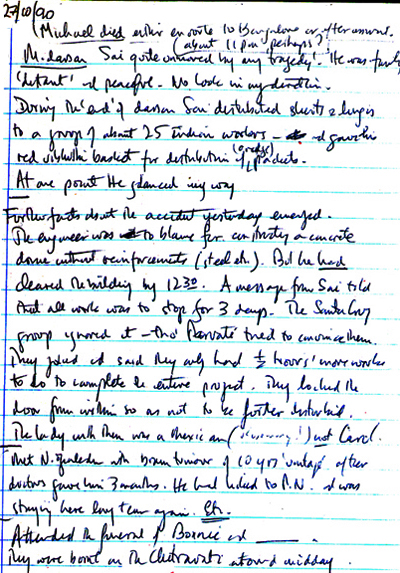 27/10/90
(Michael died either en route to Bangalore or after arrival.
(about 11pm perhaps?)
M. darsan Sai quite unmoved by any 'tragedy'. He was fairly
'distant' and peaceful. No look in my direction.
During the 'end' of darsan Sai distributed shirts & lungis
to a group of about 25 Indian workers – and gave his
red vibhuthi basket for distribution of (grey) packets.
At one point He glanced my way
Further facts about the accident yesterday emerged.
The engineer was to blame for constructing a concrete
dome without reinforcements (steel etc.). But he had
cleared the building by 1230. A message from Sai told
that all work was to stop for 3 days. The Santa Cruz
group ignored it – tho' tried to convince them.
They joked and said they only had ½ hours' more work
to do to complete the entire project. They locked the
door from within so as not to be further disturbed.
The lady with them was a Mexican ( ) not Carol.
Met N. with brain tumour of 10 yrs' after
doctors gave him 3 months. He had talked to P.N. and was
staying here long term again. Etc.
Attended the funeral of Bonnie and ______ .
They were burnt on the Chitravati around midday.